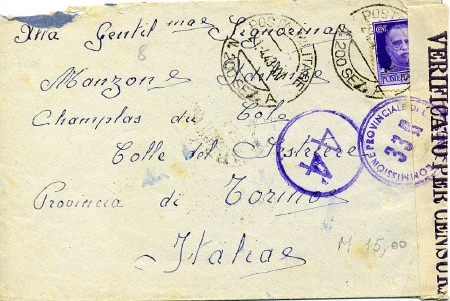 Alla Gentil mae Signorina
8
Manzone Adelina
Champlas du Col
Colle del Sestriere
Provincia di Torino
Italia
M 15,00
POSTA MILITARE
N. 200 SEZ. A
POSTA
N. 200 SEZ. A
CENT
POSTE
A
COMMISSIONE PROVINCIALE DI C
33 R
VERIFICATO PER CENSURA